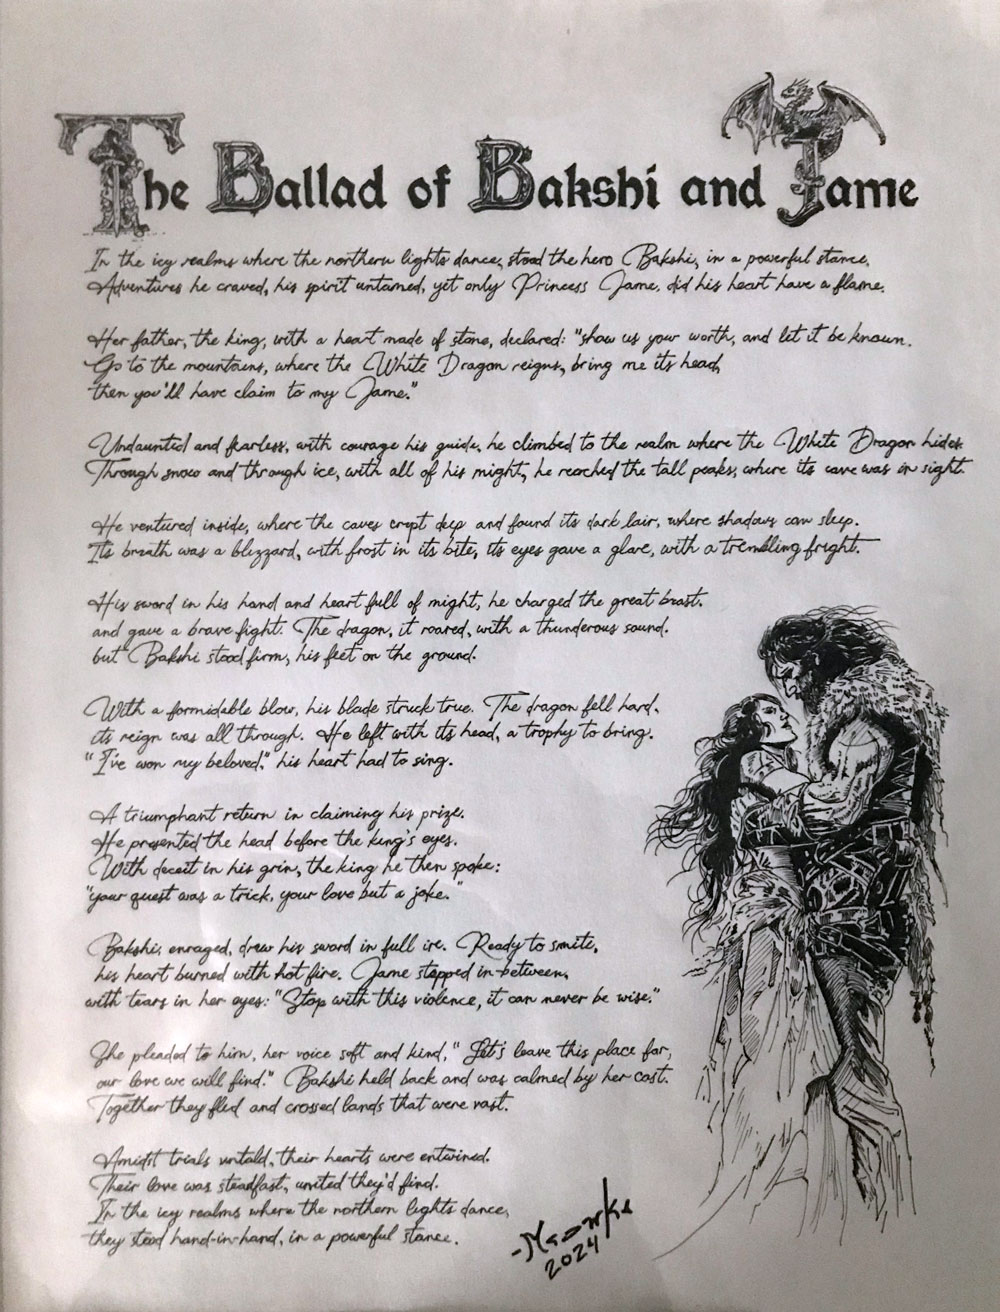 The Ballad of Bakshi and Jame
In the icy realms where the northern lights dance, stood the hero Bakshi, in a powerful stance.
Adventures he craved, his spirit untamed, yet only Princess Jame, did his heart have a flame.
Her father, the king, with a heart made of stone, declared: "show us your worth, and let it be known.
Go to the mountains, where the White Dragon reigns, bring me its head,
then you'll have claim to my Jame."
Undaunted and fearless, with courage his guide, he climbed to the realm where the White Dragon hides
Through snow and through ice, with all of his might, he reached the tall peaks, where its cave was in sight.
He ventured inside, where the caves crept deep and found its dark lair, where shadows can sleep.
Its breath was a blizzard, with frost in its bite, its eyes gave a glare, with a trembling fright.
His sword in his hand and heart full of might, he charged the great beast.
and gave a brave fight. The dragon, it roared, with a thunderous sound.
but Bakshi stood firm, his feet on the ground.
With a formidable blow, his blade struck true. The dragon fell hard,
its reign was all through. He left with its head, a trophy to bring.
"I've won my beloved," his heart had to sing.
A triumphant return in claiming his prize.
He presented the head before the king's eyes.
With deceit in his grin, the king he then spoke:
"your quest was a trick, your love but a joke."
Bakshi, enraged, drew his sword in full ire. Ready to smite,
his heart burned with hot fire. Jame stepped in-between,
with tears in her eyes: "Stop with this violence, it can never be wise."
She pleaded to him, her voice soft and kind, "Let's leave this place far,
our love we will find." Bakshi held back and was calmed by her cast.
Together they fled and crossed lands that were vast.
Amidst trials untold, their hearts were entwined.
Their love was steadfast, united they'd find.
In the icy realms where the northern lights dance,
they stood hand-in-hand, in a powerful stance.
2024